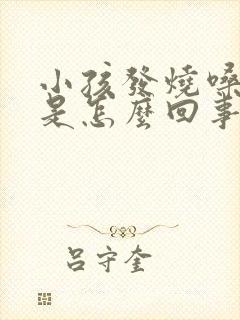 小孩發燒嗓
是怎麼回事
呂守奎